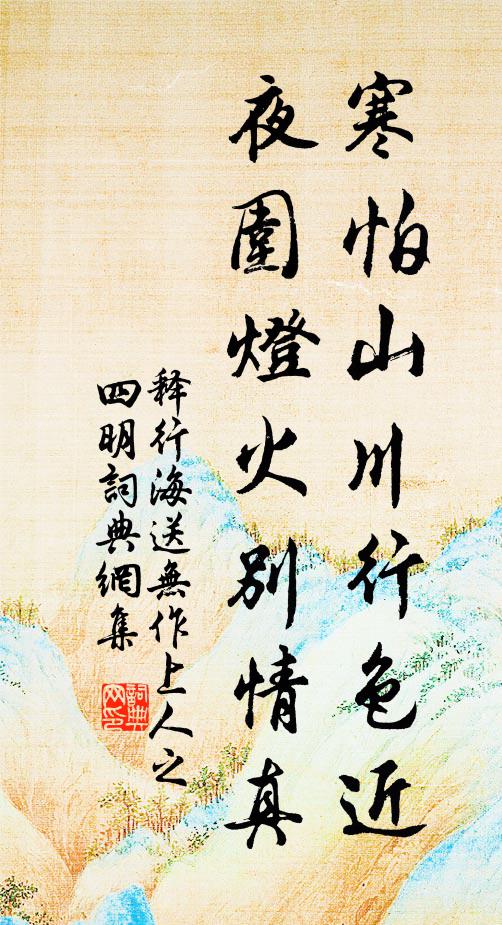 寒怕山川行色近
夜圍燈火別情真
釋行海送無作上人之
四明詞典網集
詞典
网印